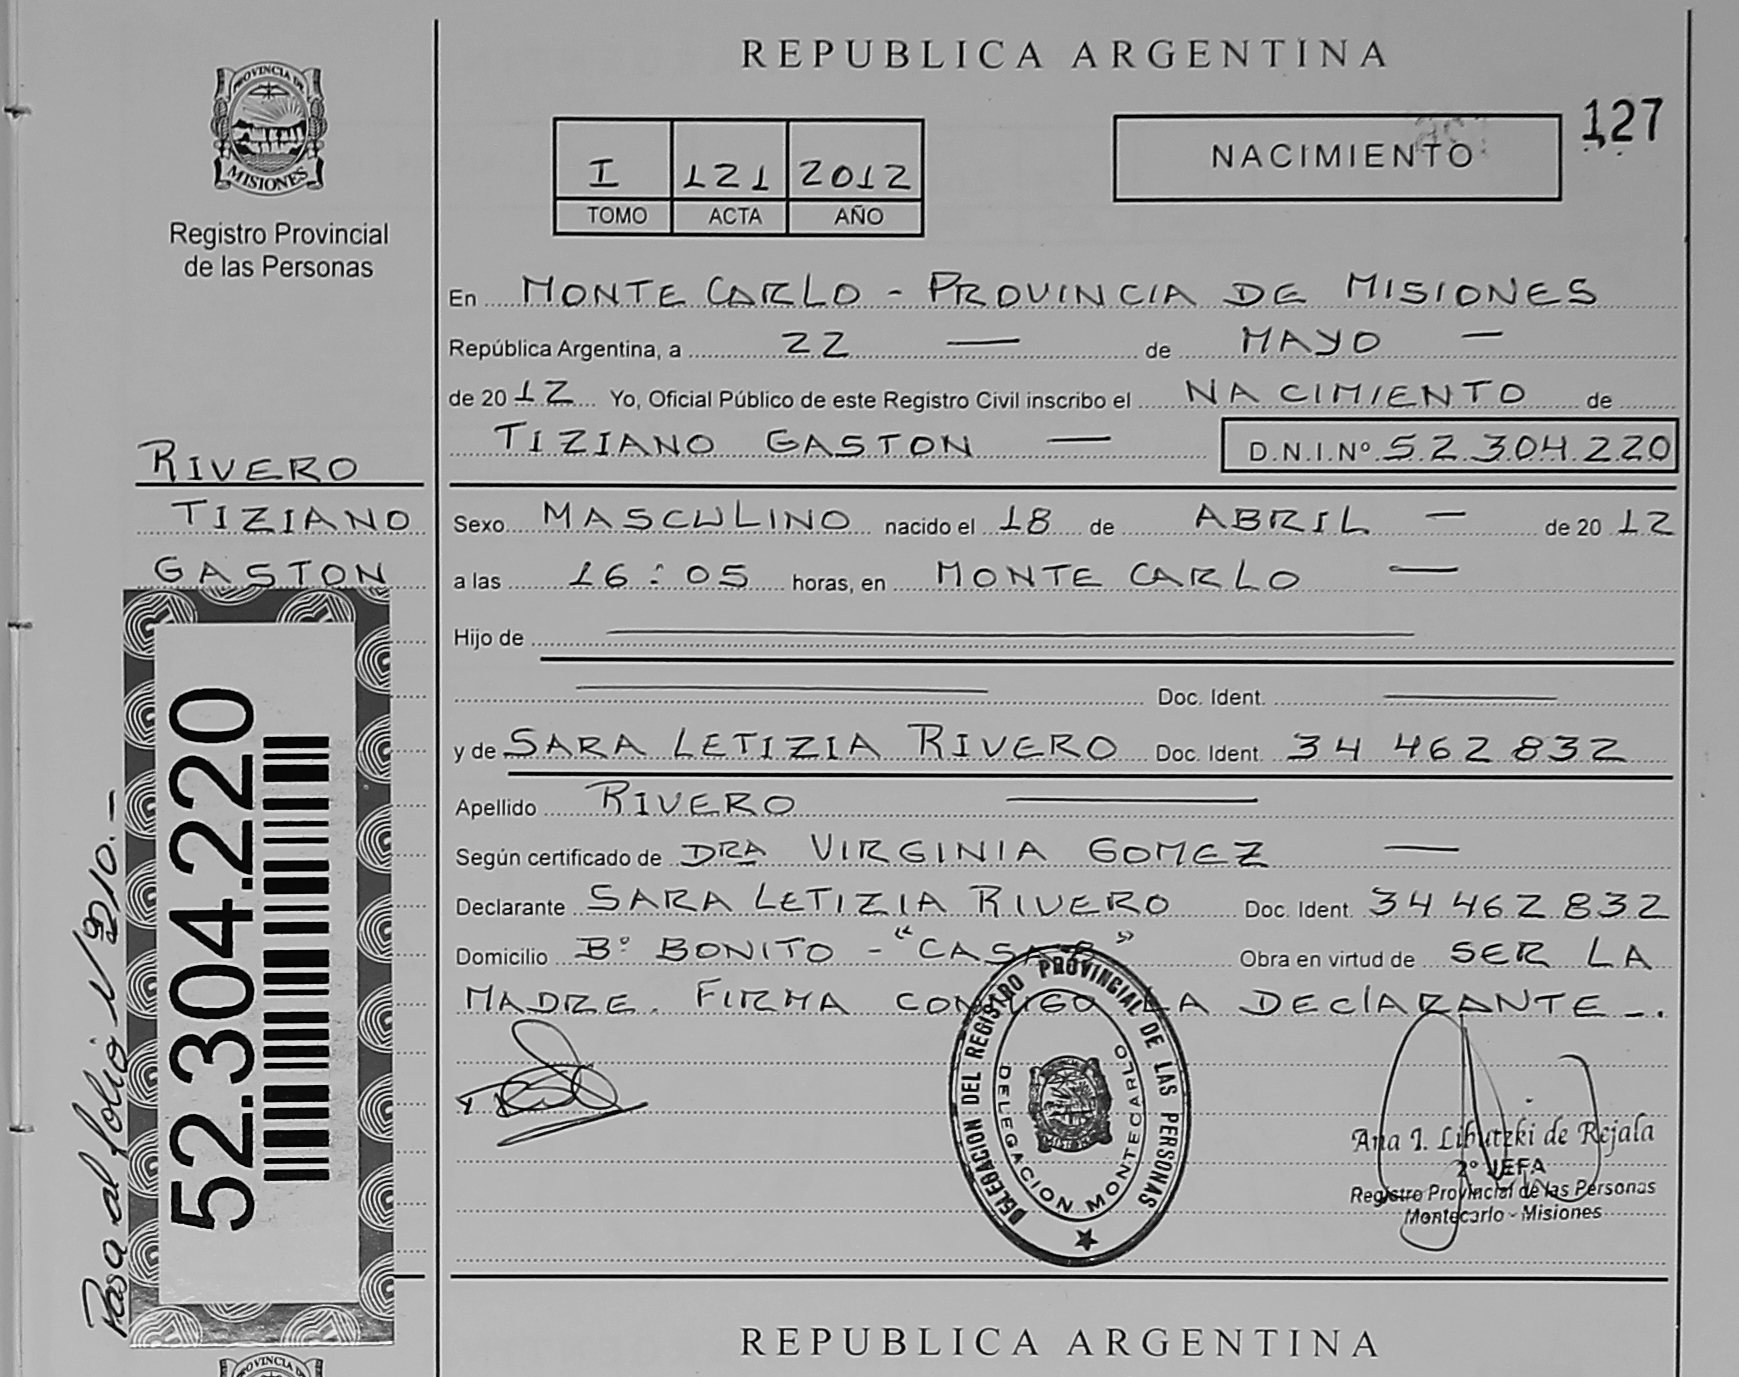 PROVINCIA DE
MISIONES
Registro Provincial
de las Personas
REPUBLICA ARGENTINA
I 121 2012
TOMO ACTA AÑO
NACIMIENTO
127
En MONTE CARLO - PROVINCIA DE MISIONES
República Argentina, a 22 — de MAYO —
de 2012 Yo, Oficial Público de este Registro Civil inscribo el NACIMIENTO de
TIZIANO GASTON — D.N.I.Nº 52.304.220
RIVERO
TIZIANO
GASTON
Sexo MASCULINO nacido el 18 de ABRIL — de 2012
a las 16:05 horas, en MONTE CARLO —
Hijo de —
— Doc. Ident. —
y de SARA LETIZIA RIVERO Doc. Ident. 34 462 832
Apellido RIVERO —
Según certificado de DRA VIRGINIA GOMEZ —
Declarante SARA LETIZIA RIVERO Doc. Ident. 34 462 832
Domicilio Bº BONITO - "CASA " Obra en virtud de SER LA
MADRE. FIRMA CONMIGO LA DEClARANTE -.
52.304.220
Pasa al folio Nº 210.-
DELEGACION DEL REGISTRO PROVINCIAL DE LAS PERSONAS
DELEGACION MONTECARLO
Ana I. Libutzki de Rejala
2º JEFA
Registro Provincial de las Personas
Montecarlo - Misiones
REPUBLICA ARGENTINA
PROVINCIA DE